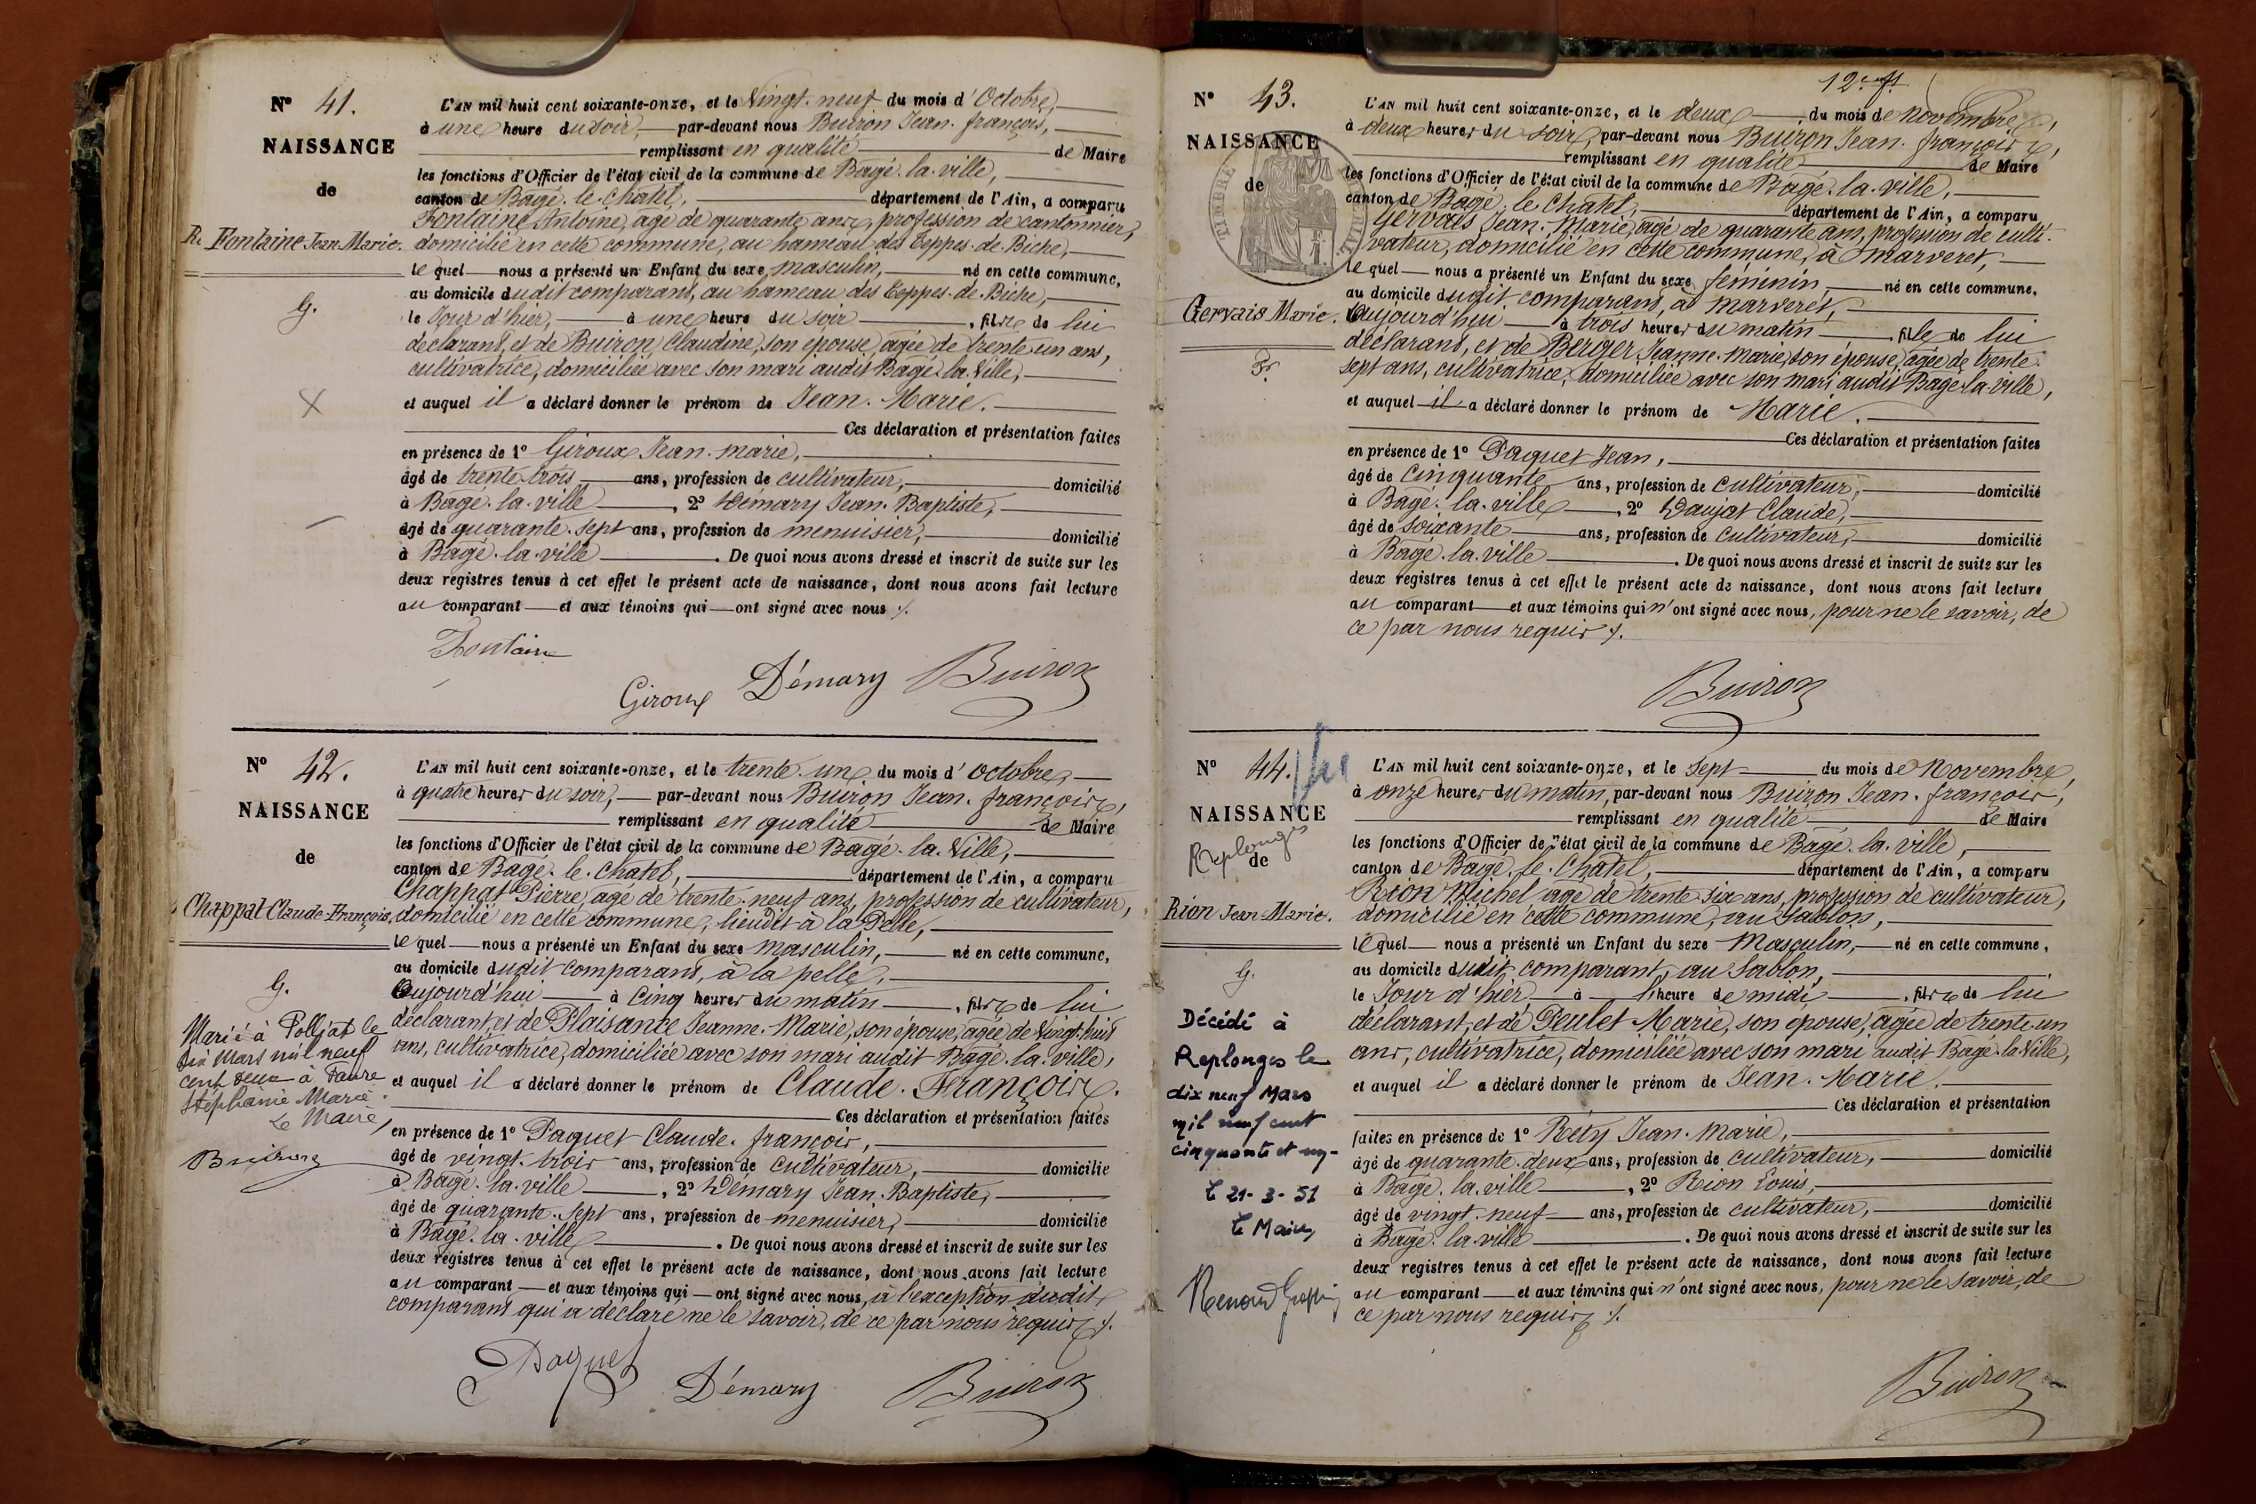 N° 41.
NAISSANCE
de
R. Fontaine Jean Marie.
G.
L'AN mil huit cent soixante-onze, et le Vingt-neuf du mois d'Octobre,
à une heure du soir, par-devant nous Buiron Jean-françois,
remplissant en qualité de Maire
les fonctions d'Officier de l'état civil de la commune de Bagé-la-ville,
canton de Bagé-le-Chatel, département de l'Ain, a comparu
Fontaine Antoine, agé de quarante ans, profession de cantonnier,
domicilié en cette commune, au hameau des Teppes-de-Biche,
le quel nous a présenté un Enfant du sexe masculin, né en cette commune,
au domicile dudit comparant, au hameau des Teppes-de-Biche,
le Jour d'hier, à une heure du soir, fils de lui
déclarant, et de Buiron Claudine, son épouse, agée de trente-un ans,
cultivatrice, domiciliée avec son mari audit Bagé-la-Ville,
et auquel il a déclaré donner le prénom de Jean-Marie.
Ces déclaration et présentation faites
en présence de 1° Giroux Jean-marie,
âgé de trente-trois ans, profession de cultivateur, domicilié
à Bagé-la-ville, 2° Démary Jean-Baptiste,
âgé de quarante-sept ans, profession de menuisier, domicilié
à Bagé-la-ville. De quoi nous avons dressé et inscrit de suite sur les
deux registres tenus à cet effet le présent acte de naissance, dont nous avons fait lecture
au comparant et aux témoins qui ont signé avec nous
Fontaine
Giroux Démary Buiron
N° 42.
NAISSANCE
de
Chappat Claude-François.
G.
Marié à Polliat le
dix Mars mil neuf
cent deux à Favre
Stéphanie Marie.
Le Maire,
Buiron
L'AN mil huit cent soixante-onze, et le trente-un du mois d'octobre,
à quatre heures du soir, par-devant nous Buiron Jean-françois,
remplissant en qualité de Maire
les fonctions d'Officier de l'état civil de la commune de Bagé-la-Ville,
canton de Bagé-le-chatel, département de l'Ain, a comparu
Chappat Pierre, agé de trente-neuf ans, profession de cultivateur,
domicilié en cette commune, lieudit à la Pelle,
le quel nous a présenté un Enfant du sexe masculin, né en cette commune,
au domicile dudit comparant, à la pelle,
Aujourd'hui à Cinq heures du matin, fils de lui
déclarant, et de Plaisance Jeanne-Marie, son épouse, agée de Vingt-huit
ans, cultivatrice, domiciliée avec son mari audit Bagé-la-ville,
et auquel il a déclaré donner le prénom de Claude-François.
Ces déclaration et présentation faites
en présence de 1° Paquet Claude-françois,
âgé de vingt-trois ans, profession de cultivateur, domicilié
à Bagé-la-ville, 2° Démary Jean-Baptiste,
âgé de quarante-sept ans, profession de menuisier, domicilié
à Bagé-la-ville. De quoi nous avons dressé et inscrit de suite sur les
deux registres tenus à cet effet le présent acte de naissance, dont nous avons fait lecture
au comparant et aux témoins qui ont signé avec nous, à l'exception dudit
comparant qui a déclaré ne le savoir, de ce par nous requis
Paquet Démary Buiron
N° 43.
NAISSANCE
de
Gervais Marie.
L'AN mil huit cent soixante-onze, et le deux du mois de novembre,
à deux heures du soir, par-devant nous Buiron Jean-françois,
remplissant en qualité de Maire
les fonctions d'Officier de l'état civil de la commune de Bagé-la-ville,
canton de Bagé-le-Chatel, département de l'Ain, a comparu
Gervais Jean-Marie, agé de quarante ans, profession de culti-
vateur, domicilié en cette commune, à Marveret,
le quel nous a présenté un Enfant du sexe féminin, né en cette commune,
au domicile dudit comparant, à Marveret,
Aujourd'hui à trois heures du matin fille de lui
déclarant, et de Berger Jeanne-Marie, son épouse, agée de trente-
sept ans, cultivatrice, domiciliée avec son mari audit Bagé-la-ville,
et auquel il a déclaré donner le prénom de Marie.
Ces déclaration et présentation faites
en présence de 1° Paquet Jean,
âgé de cinquante ans, profession de cultivateur, domicilié
à Bagé-la-ville, 2° Daujat Claude,
âgé de soixante ans, profession de cultivateur, domicilié
à Bagé-la-ville. De quoi nous avons dressé et inscrit de suite sur les
deux registres tenus à cet effet le présent acte de naissance, dont nous avons fait lecture
au comparant et aux témoins qui n'ont signé avec nous, pour ne le savoir, de
ce par nous requis
Buiron
N° 44.
NAISSANCE
Replonges
de
Rion Jean-Marie.
G.
Décédé à
Replonges le
dix neuf Mars
mil neuf cent
cinquante et un-
le 21-3-51
le Maire
L'AN mil huit cent soixante-onze, et le Sept du mois de Novembre,
à onze heures du matin, par-devant nous Buiron Jean-françois,
remplissant en qualité de Maire
les fonctions d'Officier de l'état civil de la commune de Bagé-la-ville,
canton de Bagé-le-Chatel, département de l'Ain, a comparu
Rion Michel agé de trente-six ans, profession de cultivateur,
domicilié en cette commune, au Sablon,
le quel nous a présenté un Enfant du sexe Masculin, né en cette commune,
au domicile dudit comparant, au Sablon,
le Jour d'hier à l'heure de midi, fils de lui
déclarant, et de Peulet Marie, son épouse, agée de trente-un
ans, cultivatrice, domiciliée avec son mari audit Bagé-la-Ville,
et auquel il a déclaré donner le prénom de Jean-Marie.
Ces déclaration et présentation
faites en présence de 1° Réty Jean-Marie,
âgé de quarante-deux ans, profession de cultivateur, domicilié
à Bagé-la-ville, 2° Rion Louis,
âgé de vingt-neuf ans, profession de cultivateur, domicilié
à Bagé-la-ville. De quoi nous avons dressé et inscrit de suite sur les
deux registres tenus à cet effet le présent acte de naissance, dont nous avons fait lecture
au comparant et aux témoins qui n'ont signé avec nous, pour ne le savoir, de
ce par nous requis
Buiron